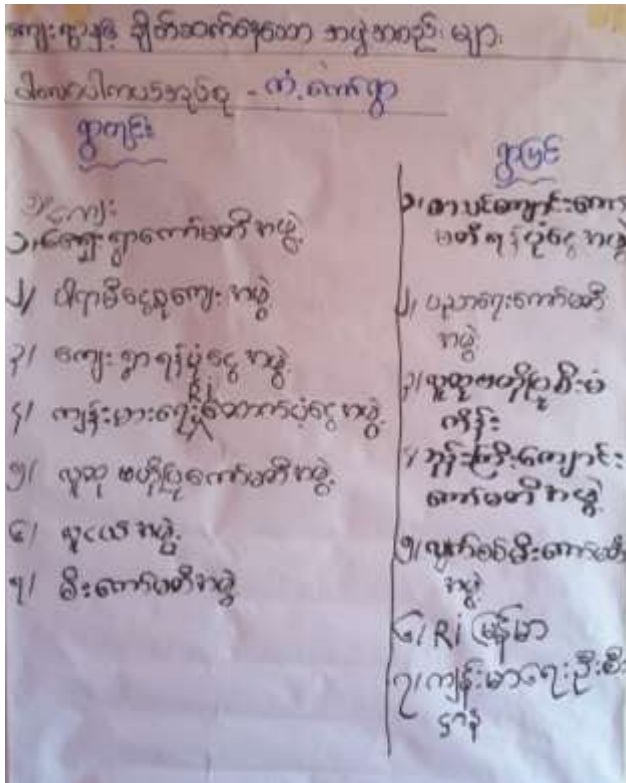 ကျေးရွာနှင့် ချိတ်ဆက်နေသော အဖွဲ့အစည်း များ
ရွာတွင်း
၁/ ကျေးရွာကော်မတီ အဖွဲ့
၂/ ပါရမီငွေစုကျေး အဖွဲ့
၃/ ကျေးရွာ ရန်ပုံငွေ အဖွဲ့
၄/ ကျန်းမာရေး Ri ထောက်ပံ့ငွေ အဖွဲ့
၅/ လူထု ဗဟိုပြုကော်မတီ အဖွဲ့
၆/ လူငယ် အဖွဲ့
၇/ မီးကော်မတီ အဖွဲ့
ရွာပြင်
၁/ စာသင်ကျောင်းကော်
မတီ ရန်ပုံငွေ အဖွဲ့
၂/ ပညာရေးကော်မတီ
အဖွဲ့
၃/ လူထုဗဟိုပြုစီးမံ
ကိန်း
၄/ ဘုန်းကြီးကျောင်း
ကော်မတီ အဖွဲ့
၅/ လျှပ်စစ်မီးကော်မတီ
အဖွဲ့
၆/ Ri မြန်မာ
၇/ ကျန်းမာရေးဦးစီး
ဌာန